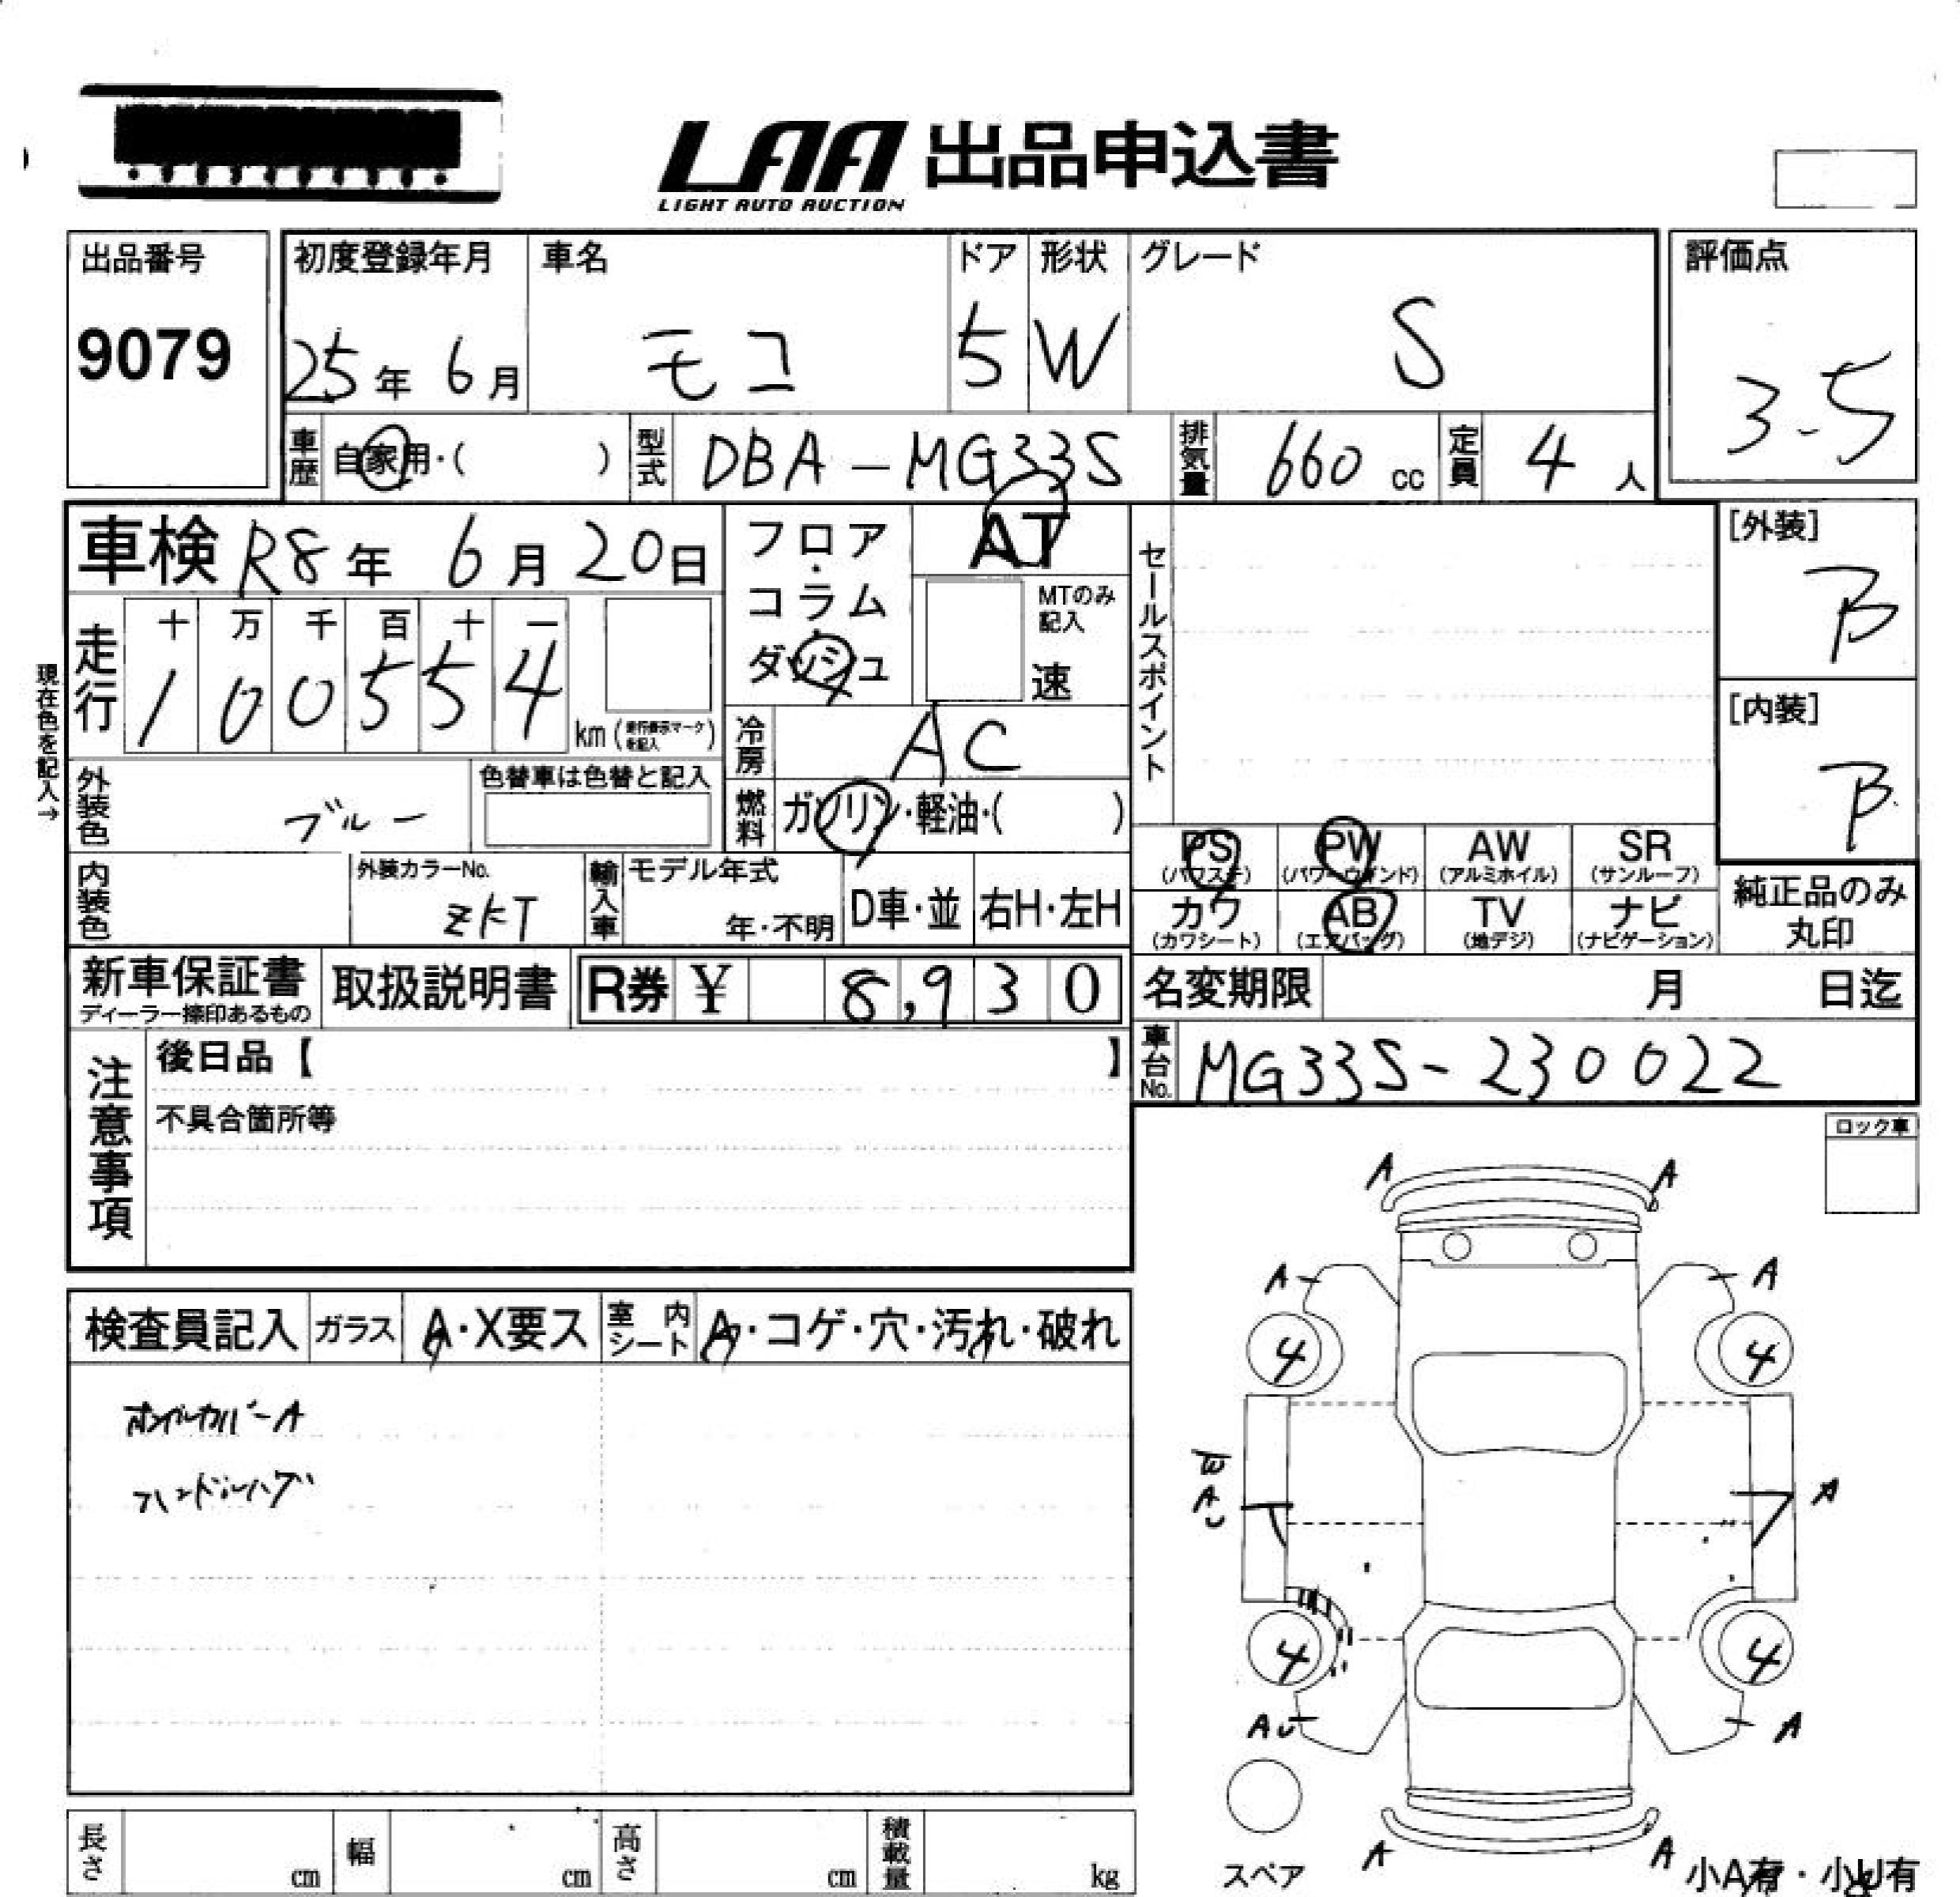 LAA 出品申込書
LIGHT AUTO AUCTION
出品番号
9079
初度登録年月
25年 6月
車名
モコ
ドア
5
形状
W
グレード
S
評価点
3.5
車歴 自家用・( )
型式 DBA-MG33S
排気量 660 cc
定員 4 人
車検 R8年 6月 20日
フロア・コラム・ダッシュ
AT
MTのみ記入
速
セールスポイント
[外装]
B
[内装]
B
現在色を記入→
走行
十 万 千 百 十 一
1 0 0 5 5 4
km (走行表示マークを記入)
冷房 AC
外装色 ブルー
色替車は色替と記入
燃料 ガソリン・軽油・( )
内装色
外装カラーNo.
ZKT
輸入車
モデル年式
年・不明
D車・並
右H・左H
PS
(パワステ)
PW
(パワーウインド)
AW
(アルミホイル)
SR
(サンルーフ)
カワ
(カワシート)
AB
(エアバッグ)
TV
(地デジ)
ナビ
(ナビゲーション)
純正品のみ
丸印
新車保証書
ディーラー捺印あるもの
取扱説明書
R券 ¥ 8,930
名変期限 月 日迄
車台No. MG33S-230022
注意事項
後日品【 】
不具合箇所等
ロック車
検査員記入
ガラス
A・X要ス
室内シート
A・コゲ・穴・汚れ・破れ
ホイルカバーA
ハンドルハゲ
A A
A A
4 4
A A
4 4
AU A
A A
スペア
小A有・小U有
長さ cm
幅 cm
高さ cm
積載量 kg